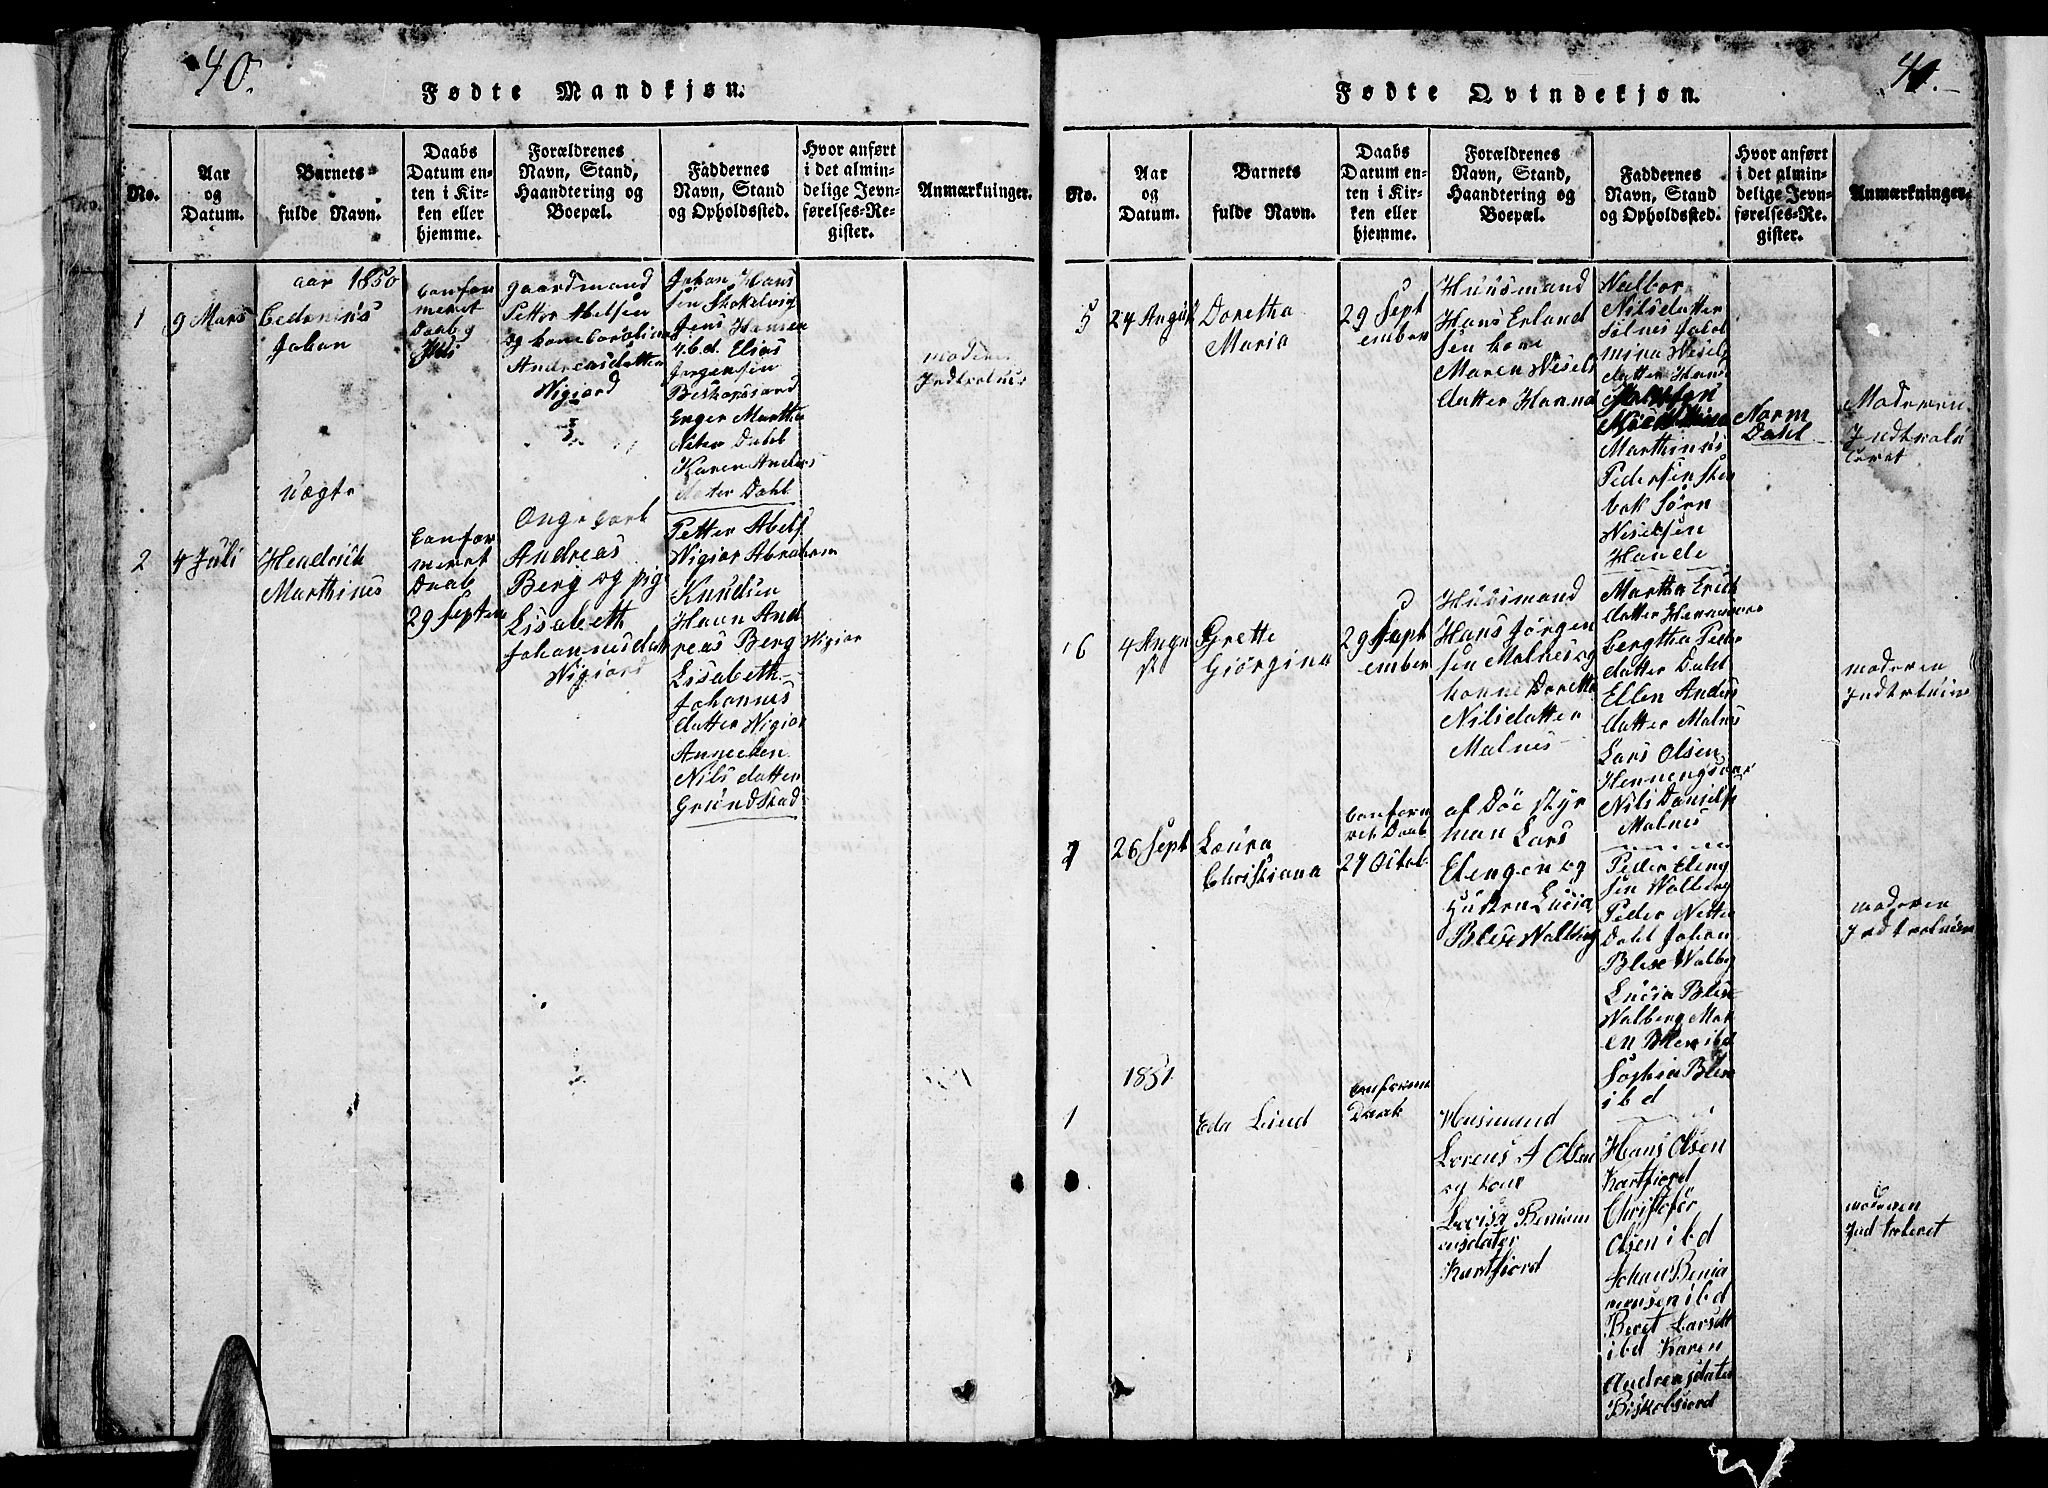 40.
Fødte Mandkjøn.
No.
Aar
og
Datum.
Barnets
fulde Navn.
Daabs
Datum en-
ten i Kir-
ken eller
hjemme.
Forældrenes
Navn, Stand,
Haandtering og
Boepæl.
Faddernes
Navn, Stand
og Opholdssted.
Hvor anført
i det almin-
delige Jevn-
førelses-Re-
gister.
Anmærkninger.
aar 1850
1
9 Mars
Johan
confor
meret
Daab
gaardmand
Petter Abelsen
og kone Carolina
Andreasdatter
Nigiord
Johan Hans
sen Skokelvig
Jens Hansen
i.b.d. Elias
Jørgensen
Enger Martha
Peter Dahl
Karen Anders
dater Dahl
moderen
uægte
2
4 Juli
Hendrich
Marthinus
confor
meret
Daab
29 Septem
Andreas
Berg og pig
Lisabeth
Johannesdatt
Nigiord
Petter Abels
Nigior Abraham
Knudsen
Havn And
reas Berg
Lisabeth
Johannes
datter Nigior
Nils datter
Grundstad
Nigior
41.
Fødte Qvindekjøn.
No.
Aar
og
Datum.
Barnets
fulde Navn.
Daabs
Datum en-
ten i Kir-
ken eller
hjemme.
Forældrenes
Navn, Stand,
Haandtering og
Boepæl.
Faddernes
Navn, Stand
og Opholdssted.
Hvor anført
i det almin-
delige Jevn-
førelses-Re-
gister.
Anmærkninger.
5
24 August
Doretha
Maria
29 Sept
ember
Huusmand
Hans Erland
sen kone
Maren Nesels
datter Hanna
Valbor
Nilsdatter
mina Nesels
datter Hans
Marthinus
Pedersen Sten
bak Sørn
Neselsen
Hande
Norm
Dahl
Moderen
6
4 Augu
st
Grette
Giørgina
29 Sept
ember
Huusmand
Hans Jørgen
sen Malnes og
konne Doretha
Nilsdatter
Malnes
Martha Erick
datter Hennesvær
Bergtha Peder
datter Dahl
Ellen Anders
datter Malnes
Lars Olsen
Nils Daniels
Malnes
moderen
7
26 Sept
Loura
Christiana
confirm
ret Daab
27 Octob.
af Døe Styr
man Lars
Elengen og
Hustru Lucia
Blese Walberg
Peder Eleng
sen Walberg
Peder Petter
Dahl Johan
Blese Walbg
Lucia Blese
Walberg Mar
en Blese ibd
Sophia Blese
i b d
moderen
1851
1
Eda Lind
conforme
Daab
Husmand
Lorens A Olsen
og kone
Lovisa Beniam
ensdater
Kartfiord
Hans Olsen
Kartfiord
Christofer
Olsen i b d
Johan Benia
mensen i b d
Beret Larsdt
i b d Karen
Andreasdater
Biskobsiord
moderen